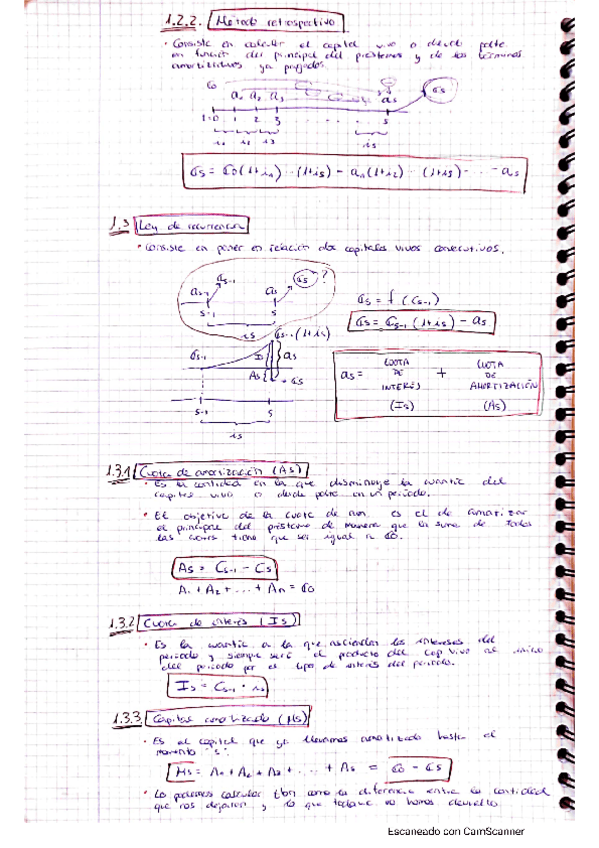 1.2.2. Método retrospectivo
• Consiste en calcular el capital vivo o deuda pdte
en función del principal del préstamo y de los términos
amortizativos ya pagados.
C0
a1 a2 a3 as Cs
t=0 1 2 3 . . . s
i1 i2 i3 is
Cs = C0(1+i1)···(1+is) - a1(1+i2)···(1+is) - ··· - as
1.3 Ley de recurrencia
• Consiste en poner en relación dos capitales vivos consecutivos.
as-1 Cs-1 as Cs ?
s-1 s
is
Cs = f (Cs-1)
Cs = Cs-1 (1+is) - as
Cs-1 (1+is)
Cs-1 Is as
As Cs
s-1 s
is
as = CUOTA DE INTERÉS + CUOTA DE AMORTIZACIÓN
(Is) (As)
1.3.1 Cuota de amortización (As)
• Es la cantidad en la que disminuye la cuantía del
capital vivo o deuda pdte en un periodo.
• El objetivo de la cuota de am. es el de amortizar
el principal del préstamo de manera que la suma de todas
las tiene que ser igual a C0.
As = Cs-1 - Cs
A1 + A2 + ... + An = C0
1.3.2 Cuota de interés (Is)
• Es la cuantía a la que ascienden los intereses del
periodo y siempre será el producto del cap vivo al inicio
del periodo por el tipo de interés del periodo.
Is = Cs-1 · is
1.3.3 Capital amortizado (Ms)
• Es el capital que ya llevamos amortizado hasta el
momento "s".
Ms = A1 + A2 + A3 + ... + As = C0 - Cs
• Lo podemos calcular tbn como la diferencia entre la cantidad
que nos dejaron y lo que todavía no hemos devuelto.
Escaneado con CamScanner